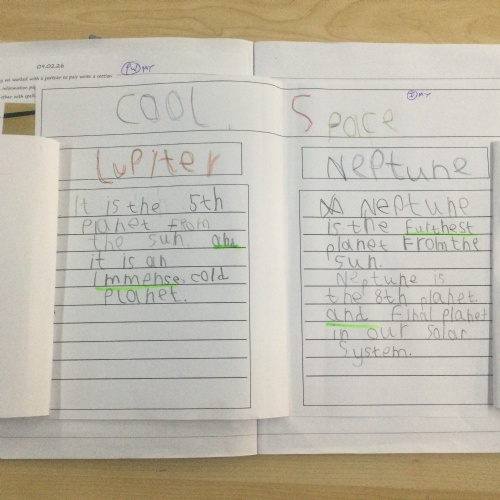 09.02.26
we worked with a partner to pair write a section
information
MY
MY
COOL Space
Lupiter
It is the 5th
planet from
the sun. and
it is an
immense, cold
planet.
Neptune
Neptune
is the furthest
planet from the
sun.
Neptune is
the 8th planet
and final planet
in our solar
system.